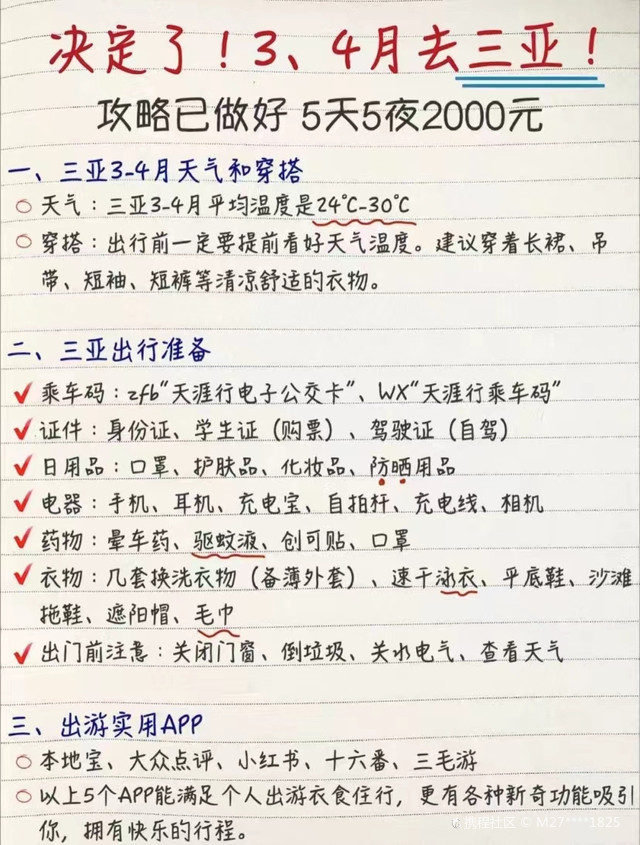 决定了！3、4月去三亚！
攻略已做好 5天5夜2000元
一、三亚3-4月天气和穿搭
天气：三亚3-4月平均温度是24℃-30℃
穿搭：出行前一定要提前看好天气温度。建议穿着长裙、吊
带、短袖、短裤等清凉舒适的衣物。
二、三亚出行准备
乘车码：zfb"天涯行电子公交卡"、WX"天涯行乘车码"
证件：身份证、学生证（购票）、驾驶证（自驾）
日用品：口罩、护肤品、化妆品、防晒用品
电器：手机、耳机、充电宝、自拍杆、充电线、相机
药物：晕车药、驱蚊液、创可贴、口罩
衣物：几套换洗衣物（备薄外套）、速干泳衣、平底鞋、沙滩
拖鞋、遮阳帽、毛巾
出门前注意：关闭门窗、倒垃圾、关水电气、查看天气
三、出游实用APP
本地宝、大众点评、小红书、十六番、三毛游
以上5个APP能满足个人出游衣食住行，更有各种新奇功能吸引
你，拥有快乐的行程。
携程社区 © M27****1825